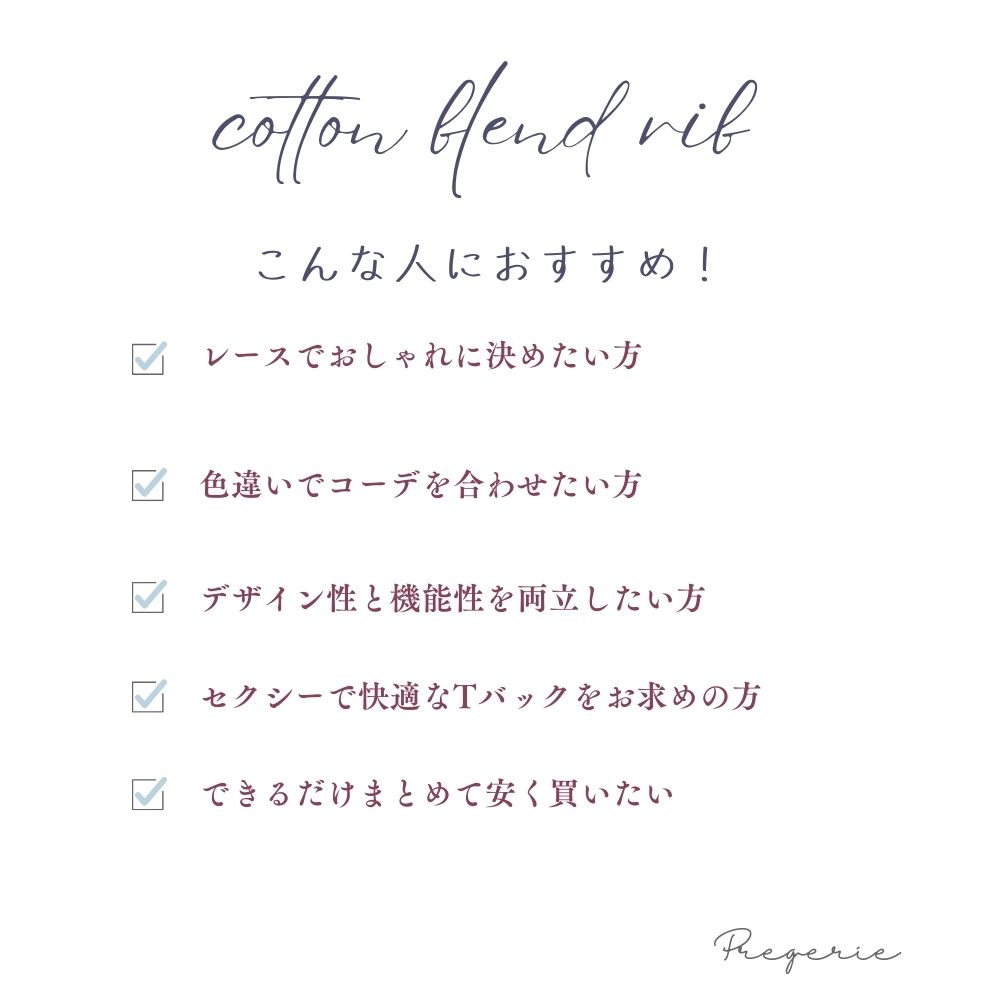 cotton blend rib
こんな人におすすめ！
レースでおしゃれに決めたい方
色違いでコーデを合わせたい方
デザイン性と機能性を両立したい方
セクシーで快適なTバックをお求めの方
できるだけまとめて安く買いたい
Pregerie